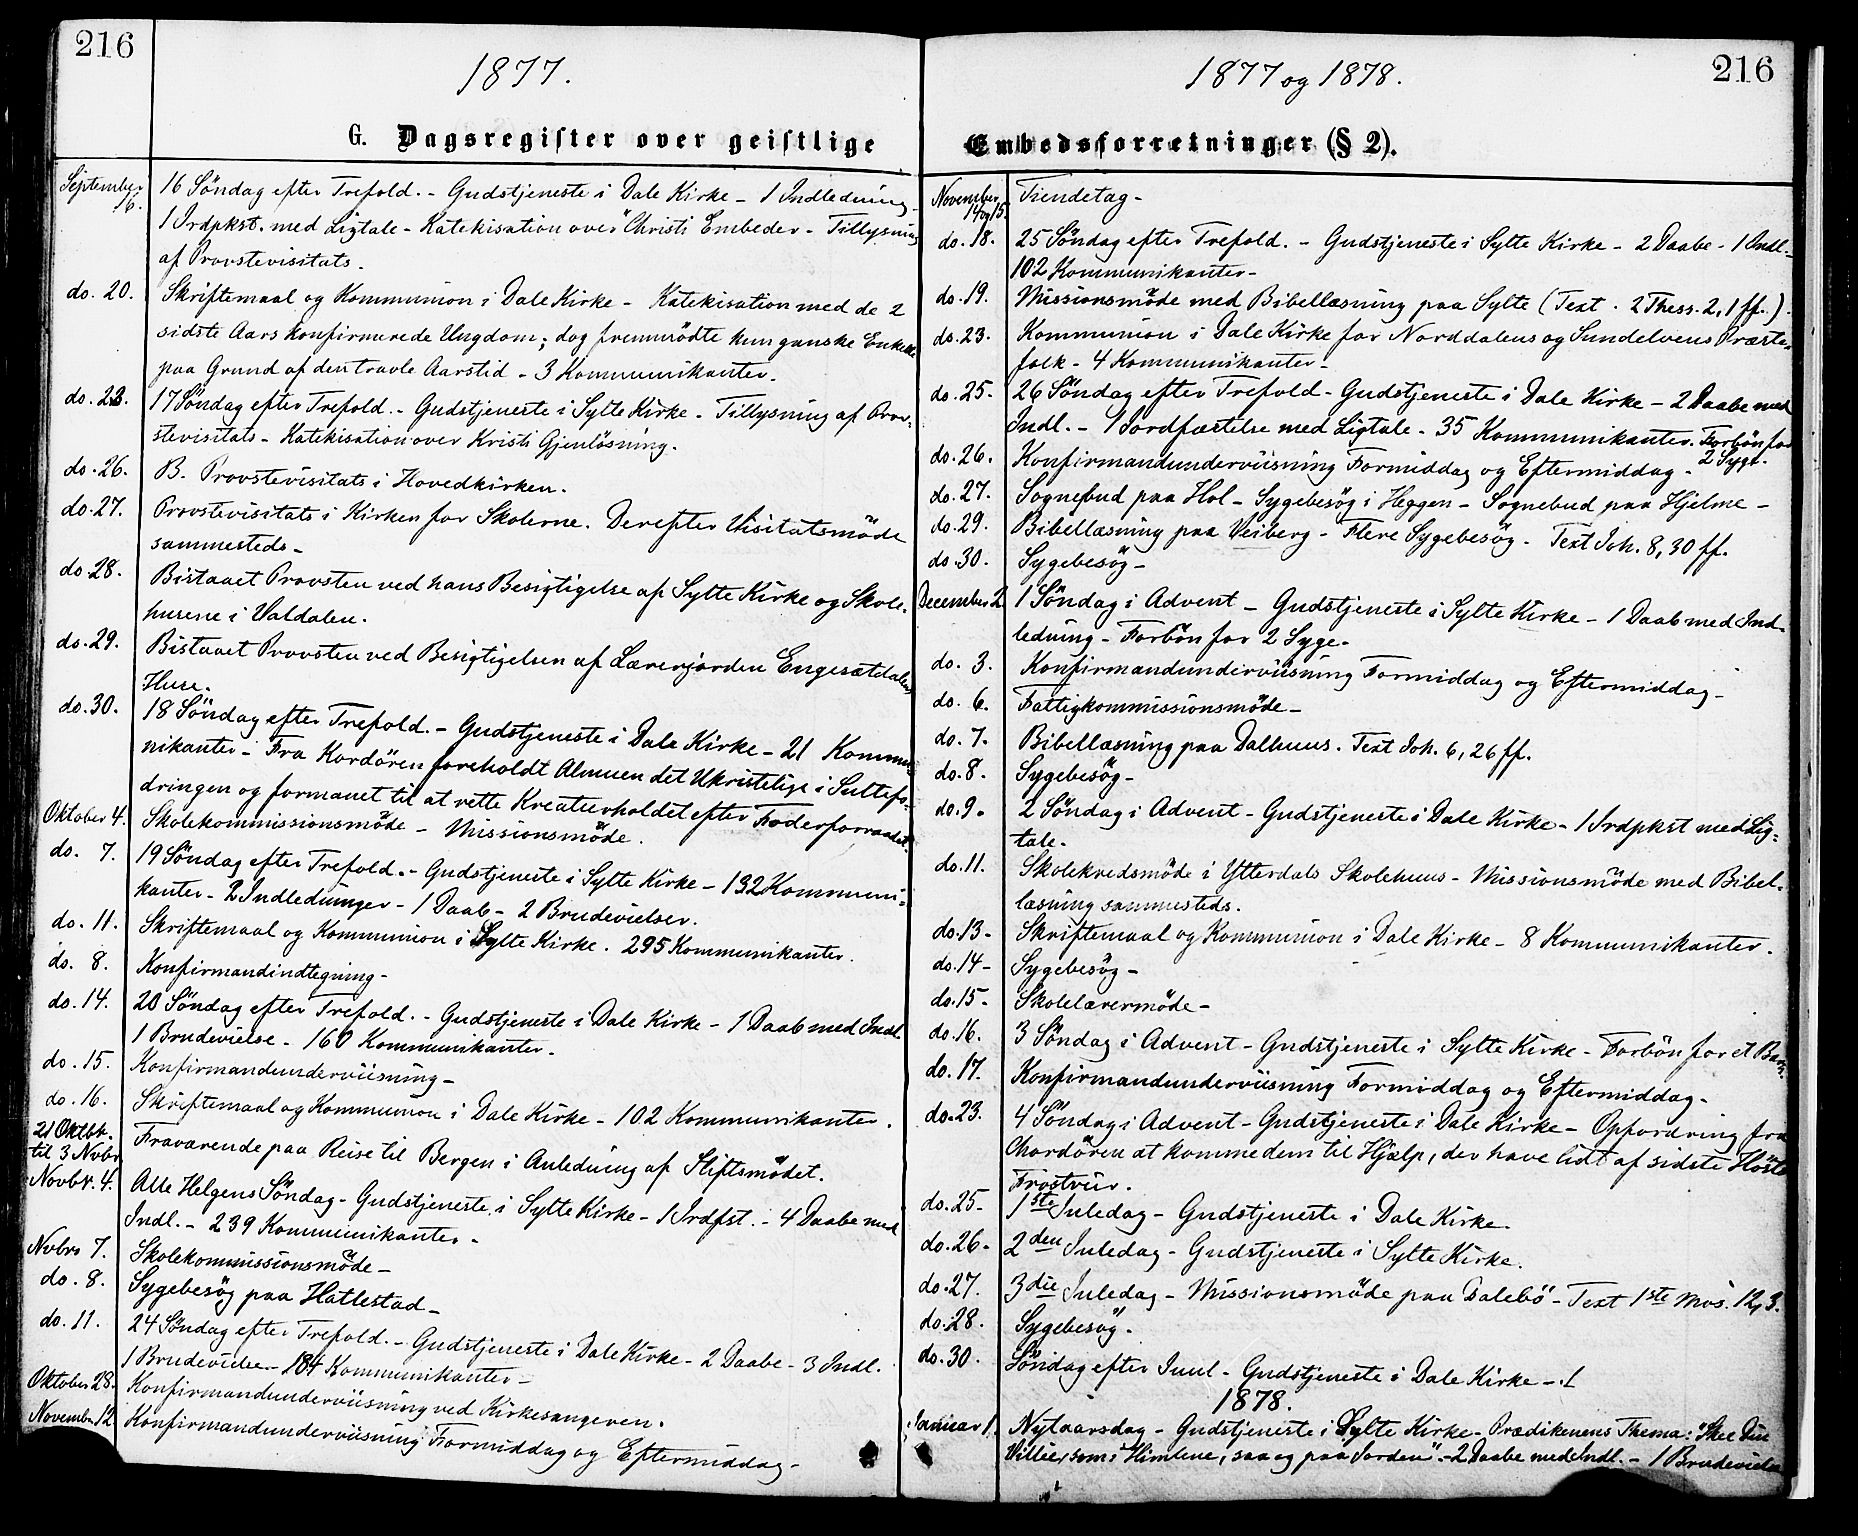 216
1877.
G. Dagsregister over geistlige
September 16.
16 Söndag efter Trefold. - Gudstjeneste i Dale Kirke - 1 Indledning -
1 Irdpkst. med Ligtale - Katekisation over Christi Embeder - Tillysning
af Provstevisitats.
do. 20.
Skriftemaal og Kommunion i Dale Kirke - Katekisation med de 2
sidste Aars konfirmerede Ungdom; dog fremmödte kun ganske Enkelte
paa Grund af den travle Aarstid - 3 Kommunikanter.
do. 23.
17 Söndag efter Trefold. - Gudstjeneste i Sylte Kirke - Tillysning af Prov-
stevisitats - Katekisation over Kristi Gjenlösning.
do. 26.
B. Provstevisitats i Hovedkirken.
do. 27.
Provstevisitats i Kirken for Skolerne. Derefter Visitatsmöde
sammesteds -
do. 28.
Bistaaet Provsten ved hans Besigtigelse af Sylte Kirke og Skole-
husene i Valdalen.
do. 29.
Bistaaet Provsten ved Besigtigelsen af Lærerjorden Engesætdalens
Huse.
do. 30.
18 Söndag efter Trefold. - Gudstjeneste i Dale Kirke - 21 Kommu-
nikanter - Fra Kordören foreholdt Almuen det Ukristelige i Sultefo-
dringen og formanet til at rette Kreaturholdet efter Foderforraadet.
Oktober 4.
Skolekommissionsmöde - Missionsmöde.
do. 7.
19 Söndag efter Trefold. - Gudstjeneste i Sylte Kirke - 132 Kommuni-
kanter - 2 Indledninger - 1 Daab - 2 Brudevielser.
do. 11.
Skriftemaal og Kommunion i Sylte Kirke. 295 Kommunikanter.
do. 8.
Konfirmandindtegning -
do. 14.
20 Söndag efter Trefold. - Gudstjeneste i Dale Kirke - 1 Daab med Indl.
1 Brudevielse - 160 Kommunikanter.
do. 15.
Konfirmandunderviisning -
do. 16.
Skriftemaal og Kommunion i Dale Kirke - 102 Kommunikanter.
21 Oktbr.
til 3 Novbr.
Fraværende paa Reise til Bergen i Anledning af Stiftsmödet.
Novbr. 4.
Alle Helgens Söndag - Gudstjeneste i Sylte Kirke - 1 Irdfst. - 4 Daabe med
Indl. - 239 Kommunikanter -
Nvbr. 7.
Skolekommissionsmöde -
do. 8.
Sygebesög paa Hatlestad -
do. 11.
24 Söndag efter Trefold. - Gudstjeneste i Dale Kirke - 2 Daabe - 3 Indl.
1 Brudevielse - 184 Kommunikanter -
Oktober 28.
Konfirmandunderviisning ved Kirkesangeren.
November 12
Konfirmandunderviisning Formiddag og Eftermiddag -
216
1877 og 1878.
Embedsforretninger (§ 2).
November
14 og 15.
Tiendetag -
do. 18.
25 Söndag efter Trefold. - Gudstjeneste i Sylte Kirke - 2 Daabe - 1 Indl. -
102 Kommunikanter -
do. 19.
Missionsmöde med Bibellæsning paa Sylte (Text. 2 Thess. 2, 1 ff.).
do. 23.
Kommunion i Dale Kirke for Norddalens og Sundelvens Præste-
folk - 4 Kommunikanter -
do. 25.
26 Söndag efter Trefold - Gudstjeneste i Dale Kirke - 2 Daabe med
Indl. - 1 Jordfæstelse med Ligtale - 35 Kommunikanter. Forbön for
2 Syge.
do. 26.
Konfirmandunderviisning Formiddag og Eftermiddag -
do. 27.
Sognebud paa Hol - Sygebesög i Heggen - Sognebud paa Hjelme -
do. 29.
Bibellæsning paa Veiberg - Flere Sygebesög - Text Joh. 8, 30 ff.
do. 30.
Sygebesög -
December 2
1 Söndag i Advent - Gudstjeneste i Sylte Kirke - 1 Daab med Ind-
ledning - Forbön for 2 Syge.
do. 3.
Konfirmandunderviisning Formiddag og Eftermiddag -
do. 6.
Fattigkommissionsmöde -
do. 7.
Bibellæsning paa Dalhuus. Text Joh. 6, 26 ff.
do. 8.
Sygebesög -
do. 9.
2 Söndag i Advent - Gudstjeneste i Dale Kirke - 1 Irdpkst med Lig-
tale.
do. 11.
Skolekredsmöde i Ytterdals Skolehuus - Missionsmöde med Bibel-
læsning sammesteds.
do. 13.
Skriftemaal og Kommunion i Dale Kirke - 8 Kommunikanter.
do. 14 -
Sygebesög -
do. 15 -
Skolelærermöde -
do. 16.
3 Söndag i Advent - Gudstjeneste i Sylte Kirke - Forbön for et Barn.
do. 17.
Konfirmandunderviisning Formiddag og Eftermiddag -
do. 23.
4 Söndag i Advent - Gudstjeneste i Dale Kirke - Opfordring fra
Chordören at komme dem til Hjælp, der have lidt af sidste Hösts
Frostviir.
do. 25 -
1ste Juledag - Gudstjeneste i Dale Kirke.
do. 26 -
2den Juledag - Gudstjeneste i Sylte Kirke.
do. 27.
3die Juledag - Missionsmöde paa Dalebö - Text 1ste Mos. 12, 3.
do. 28.
Sygebesög.
do. 30.
Söndag efter Juul - Gudstjeneste i Dale Kirke -
1878.
Januar 1.
Nytaarsdag - Gudstjeneste i Sylte Kirke - Prædikenens Thema: "Skee Din
Villie, som i Himlene, saa og paa Jorden" - 2 Daabe med Indl. - 1 Brudevielse